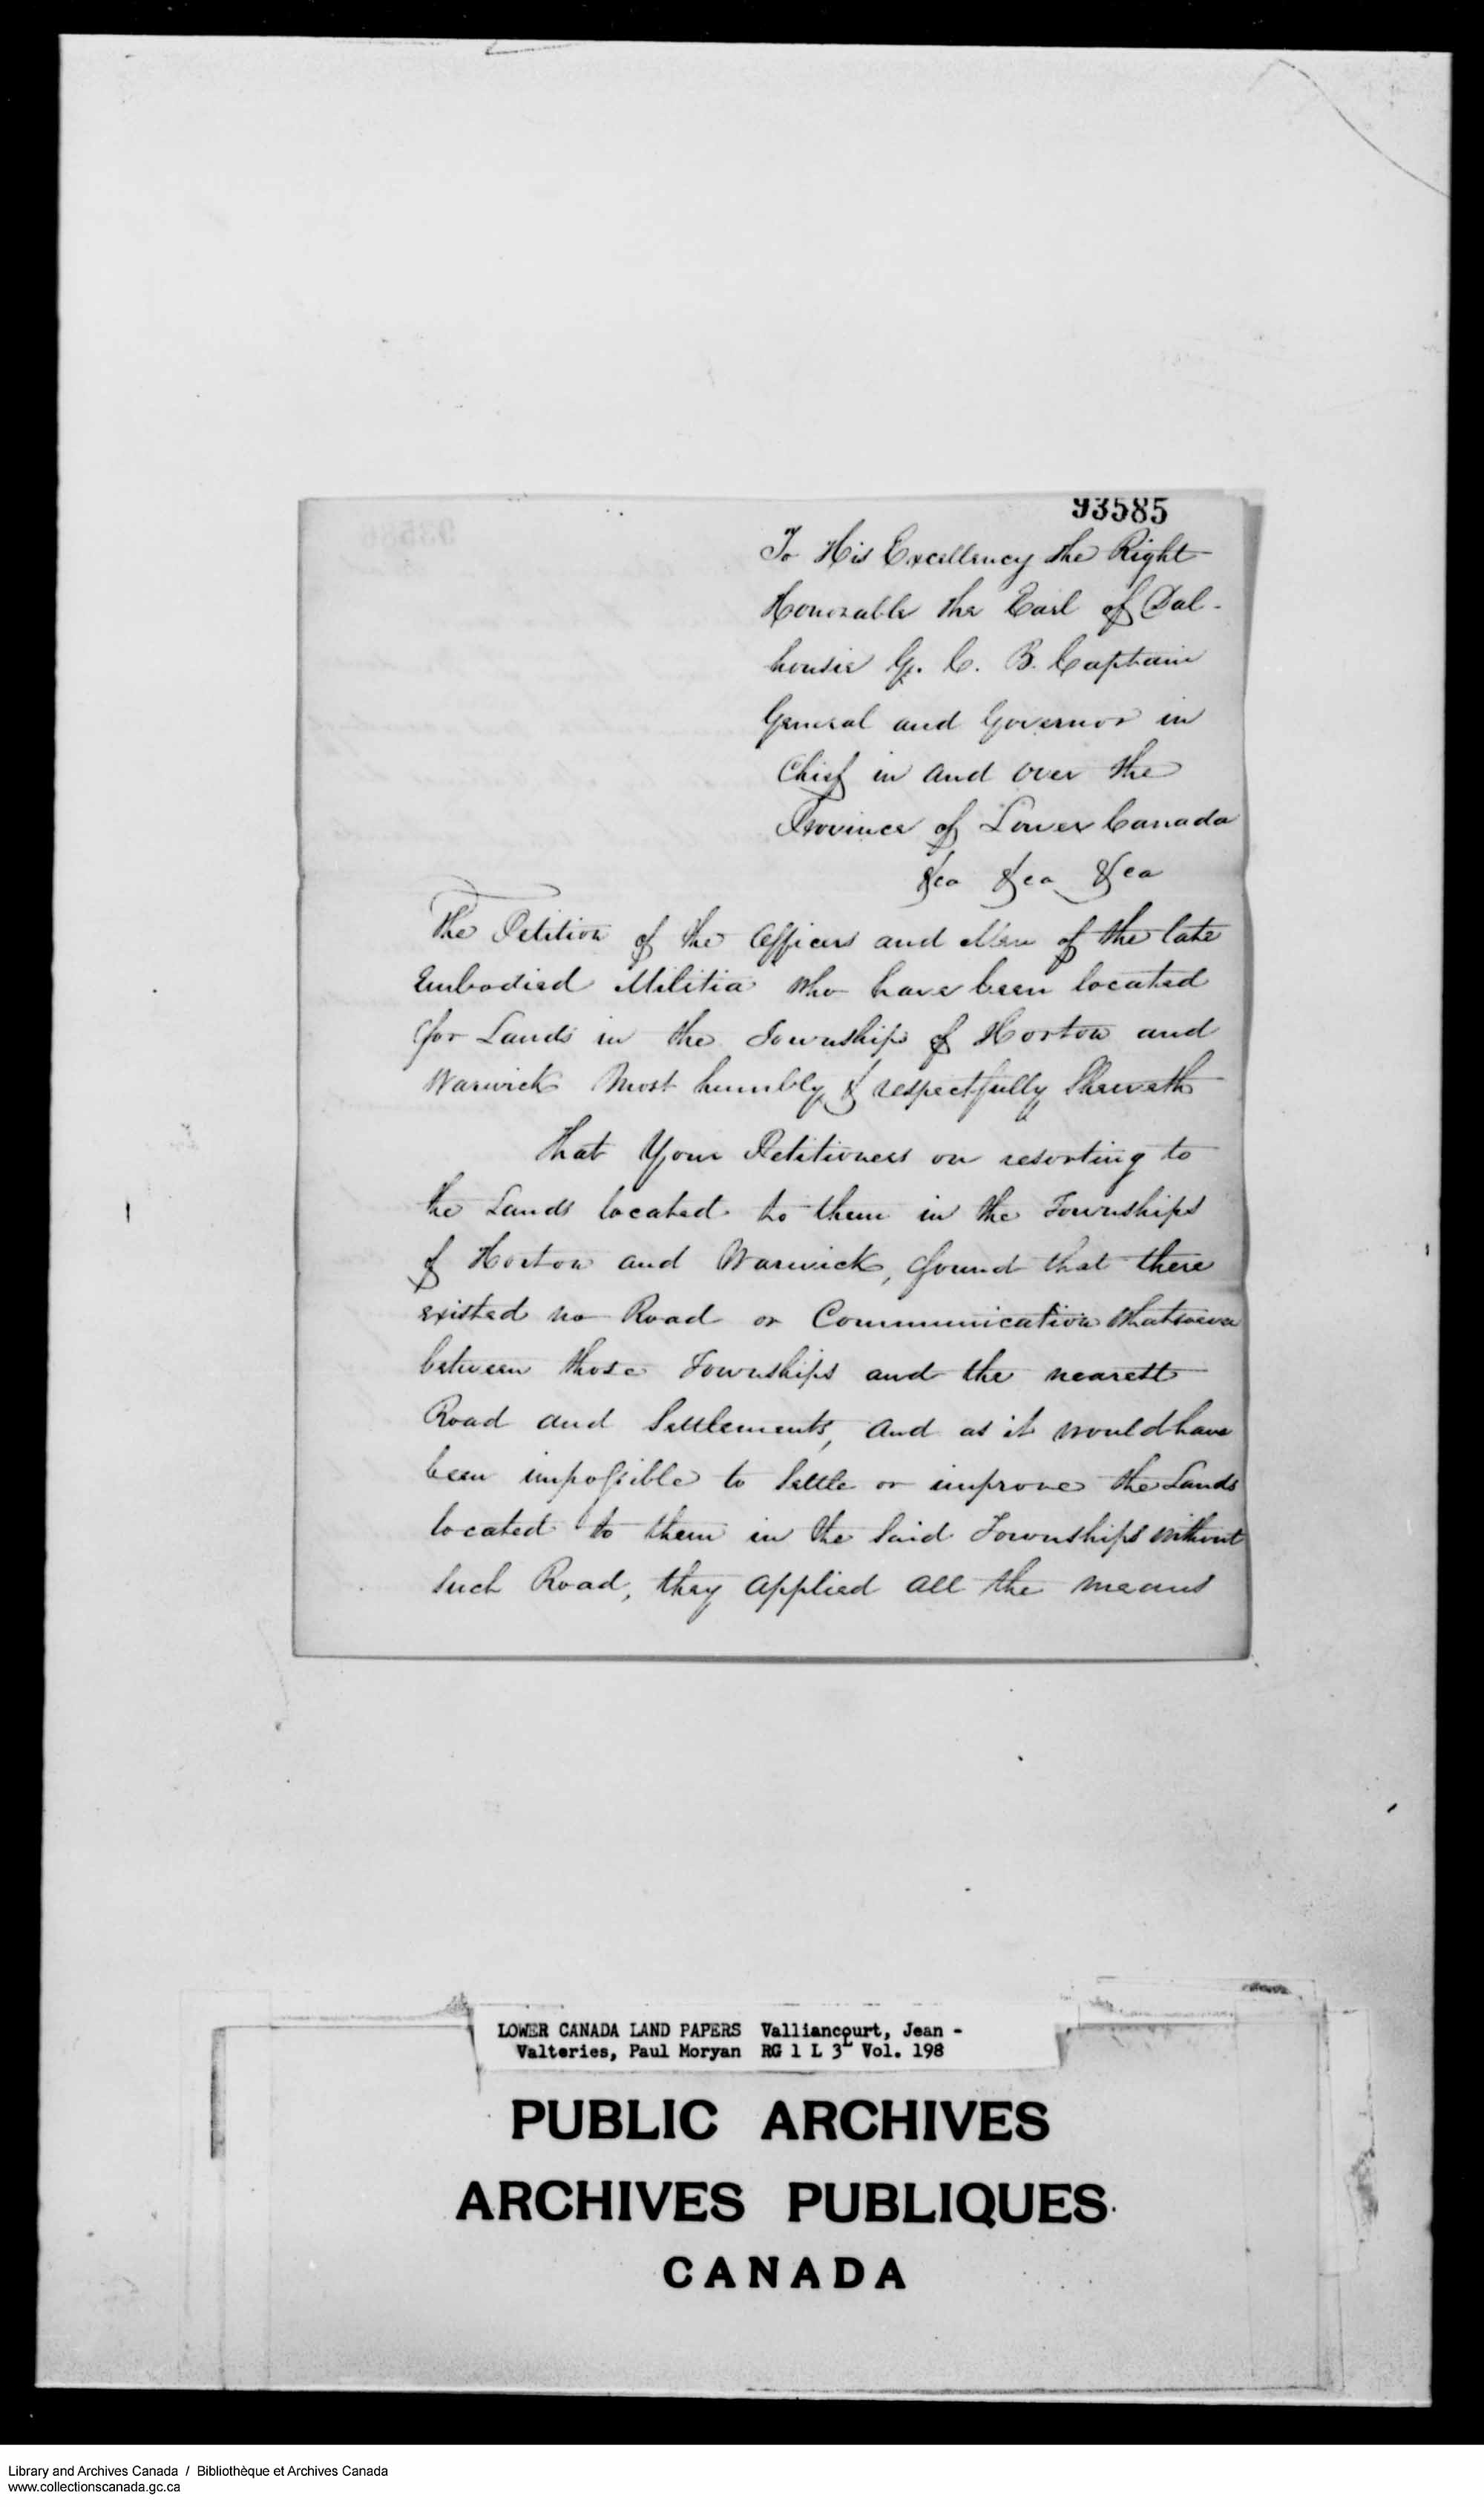 93585
To His Excellency the Right
Honorable the Earl of Dal-
housie G. C. B. Captain
General and Governor in
Chief in and over the
Province of Lower Canada
&ca &ca &ca
The Petition of the Officers and Men of the late
Embodied Militia who have been located
for Lands in the Townships of Horton and
Warwick Most humbly & respectfully Sheweth
That Your Petitioners on resorting to
the Lands located to them in the Townships
of Horton and Warwick, found that there
existed no Road or Communication whatsoever
between those Townships and the nearest
Road and Settlements, and as it would have
been impossible to Settle or improve the Lands
located to them in the Said Townships without
Such Road, they applied all the means
LOWER CANADA LAND PAPERS Valliancourt, Jean -
Valteries, Paul Moryan RG 1 L 3L Vol. 198
PUBLIC ARCHIVES
ARCHIVES PUBLIQUES
CANADA
Library and Archives Canada / Bibliothèque et Archives Canada
www.collectionscanada.gc.ca